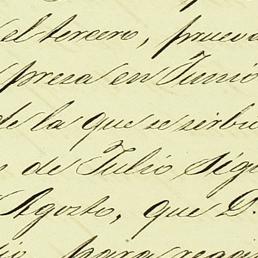 el tercero, prueva
presa en Junio
de la que se sirbu
de Julio, sigu
Agosto, que D.
para